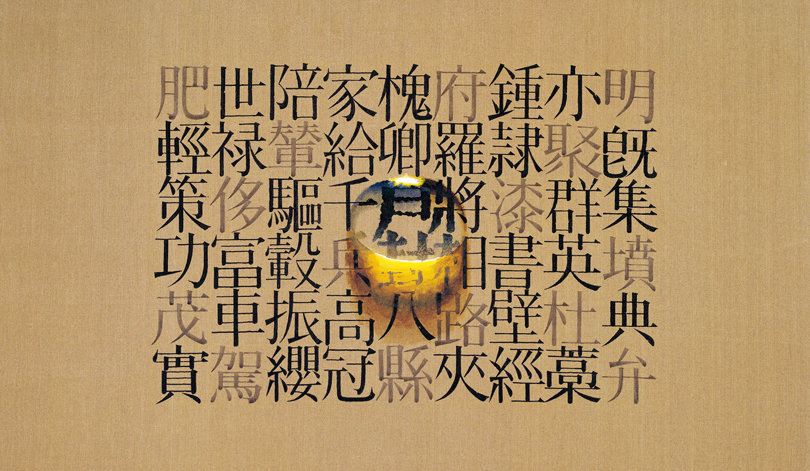 明旣集墳典弁
亦聚群英杜藁
鍾隷漆書壁經
府羅將相路夾
槐卿八縣
家給千兵高冠
陪輦驅轂振纓
世禄侈富車駕
肥輕策功茂實